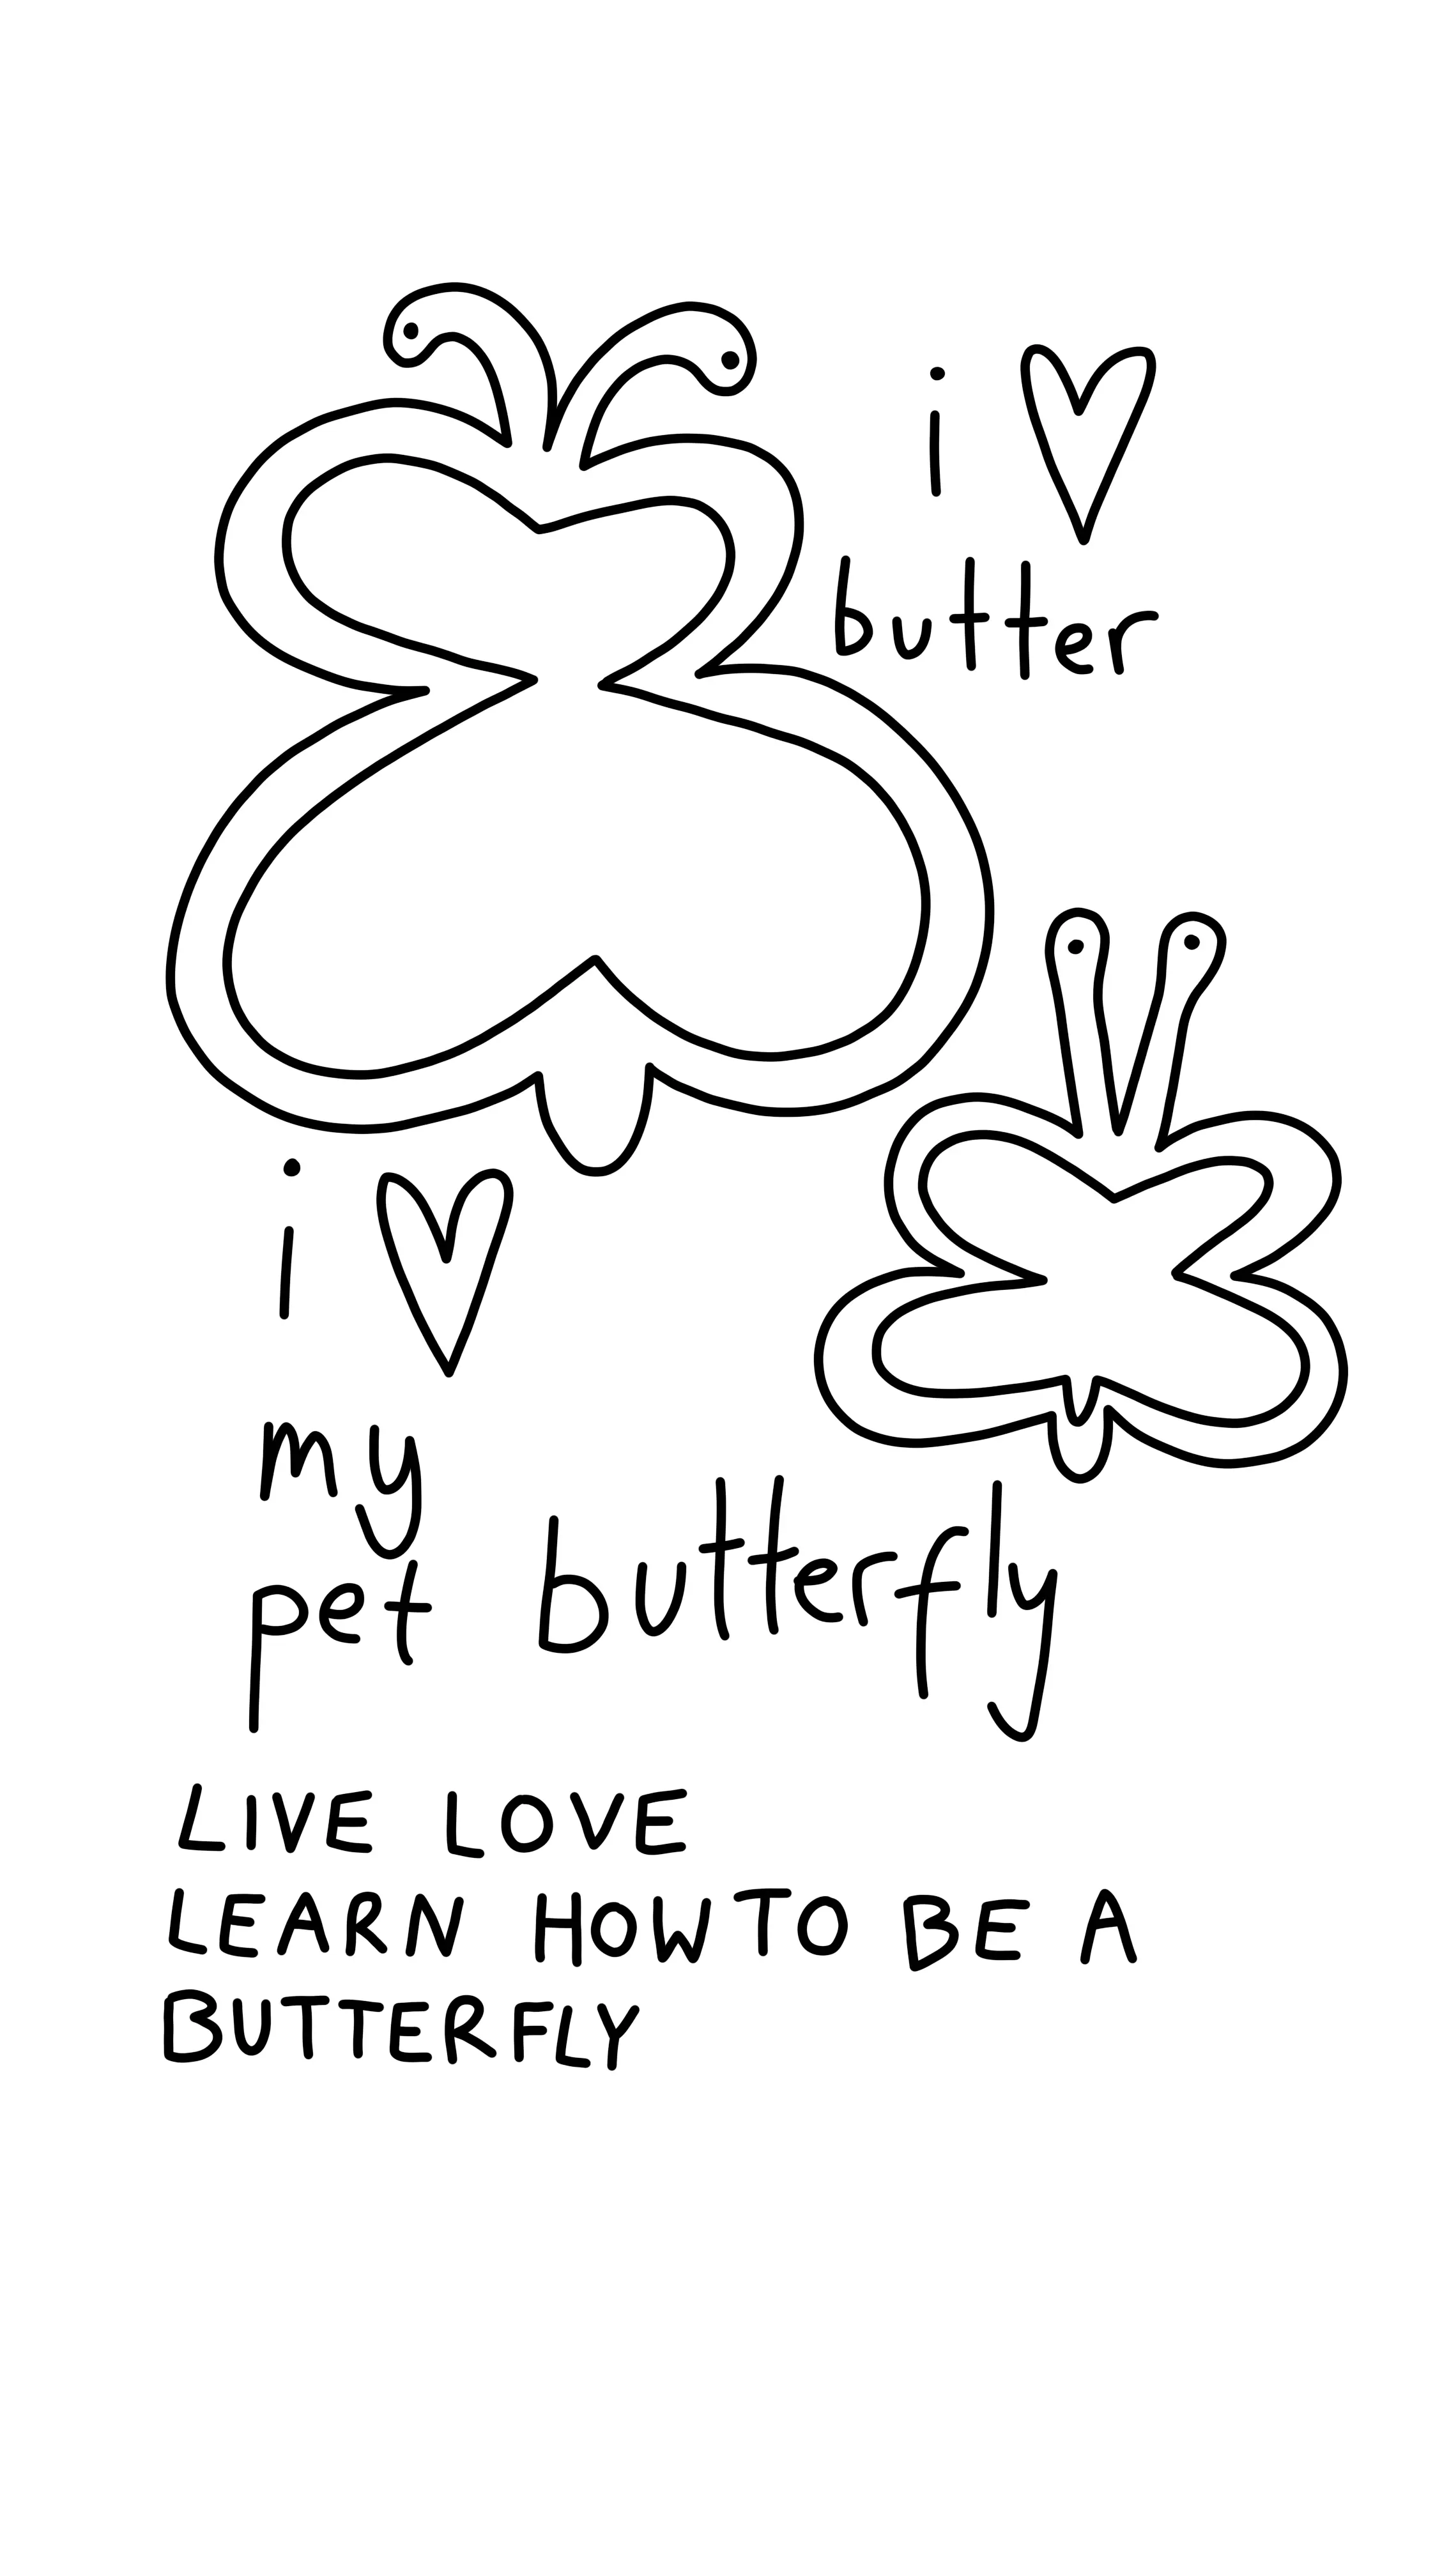 i ♡
butter
i ♡
my
pet butterfly
LIVE LOVE
LEARN HOW TO BE A
BUTTERFLY